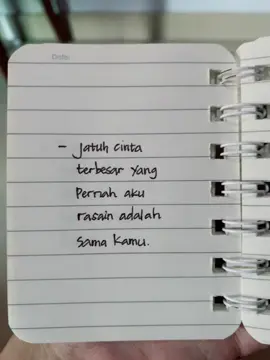 Date:
- Jatuh cinta
terbesar yang
Pernah aku
rasain adalah
sama kamu.